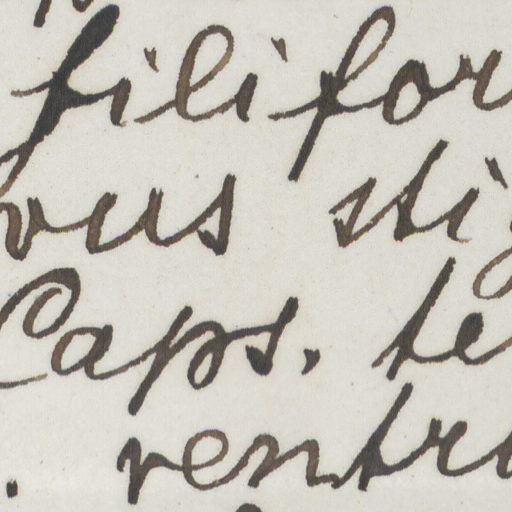 filifor
vus stig
Caps. te
. ventri